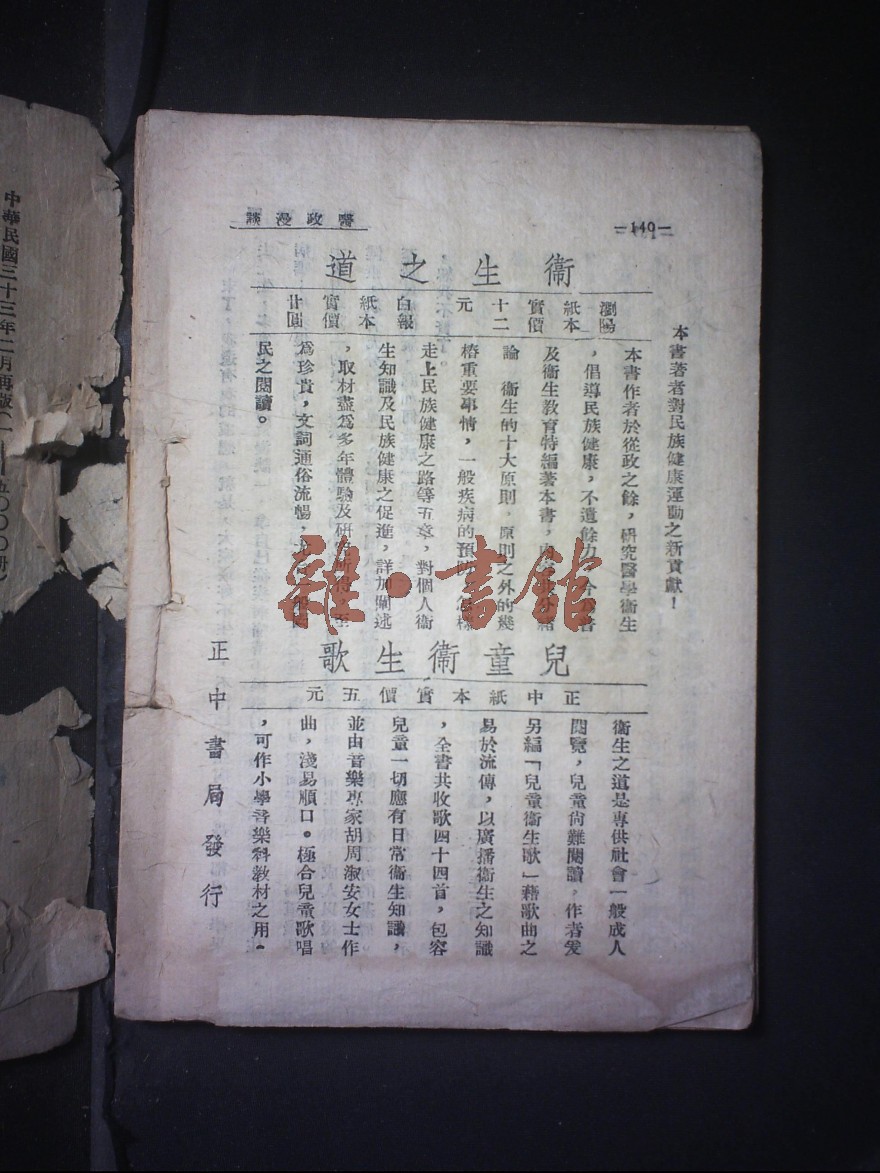 醫政漫談
—140—
本書著者對民族健康運動之新貢獻！
衞生之道
瀏陽紙本實價十二元
白報紙本實價廿圓
本書作者於從政之餘，研究醫學衞生
，倡導民族健康，不遺餘力，
及衞生教育特編著本書，
論　衞生的十大原則，原則之外的幾
樁重要事情，一般疾病的預防，怎樣
走上民族健康之路等五章，對個人衞
生知識及民族健康之促進，詳加闡述
，取材盡爲多年體驗及研究所得，至
爲珍貴，文詞通俗流暢，
民之閱讀。
兒童衞生歌
正中紙本實價五元
衞生之道是專供社會一般成人
閱覽，兒童尚難閱讀，作者爰
另編「兒童衞生歌」藉歌曲之
易於流傳，以廣播衞生之知識
，全書共收歌四十四首，包容
兒童一切應有日常衞生知識，
並由音樂專家胡周淑安女士作
曲，淺易順口。極合兒童歌唱
，可作小學音樂科教材之用。
正中書局發行
中華民國三十三年二月再版
五〇〇〇册）
雜·書館